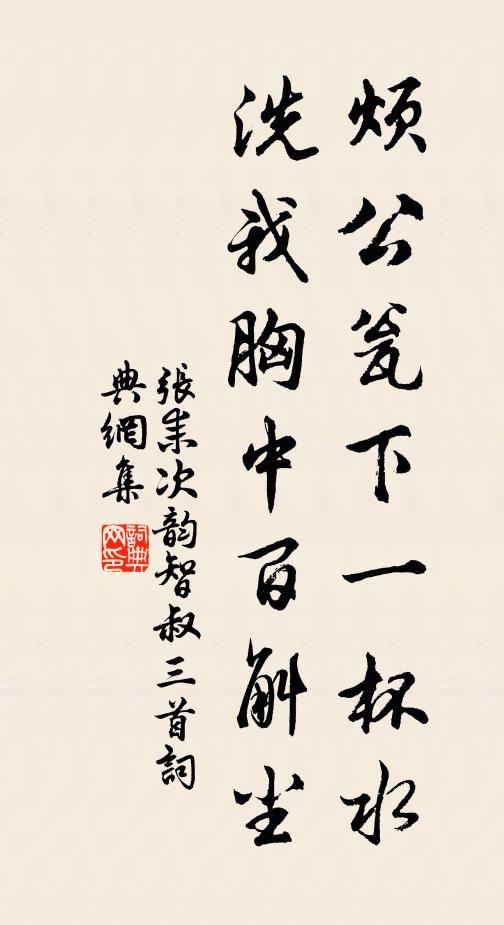 烦公瓮下一杯水
洗我胸中百斛尘
張耒次韵智叔三首詞
典網集
詞典網印